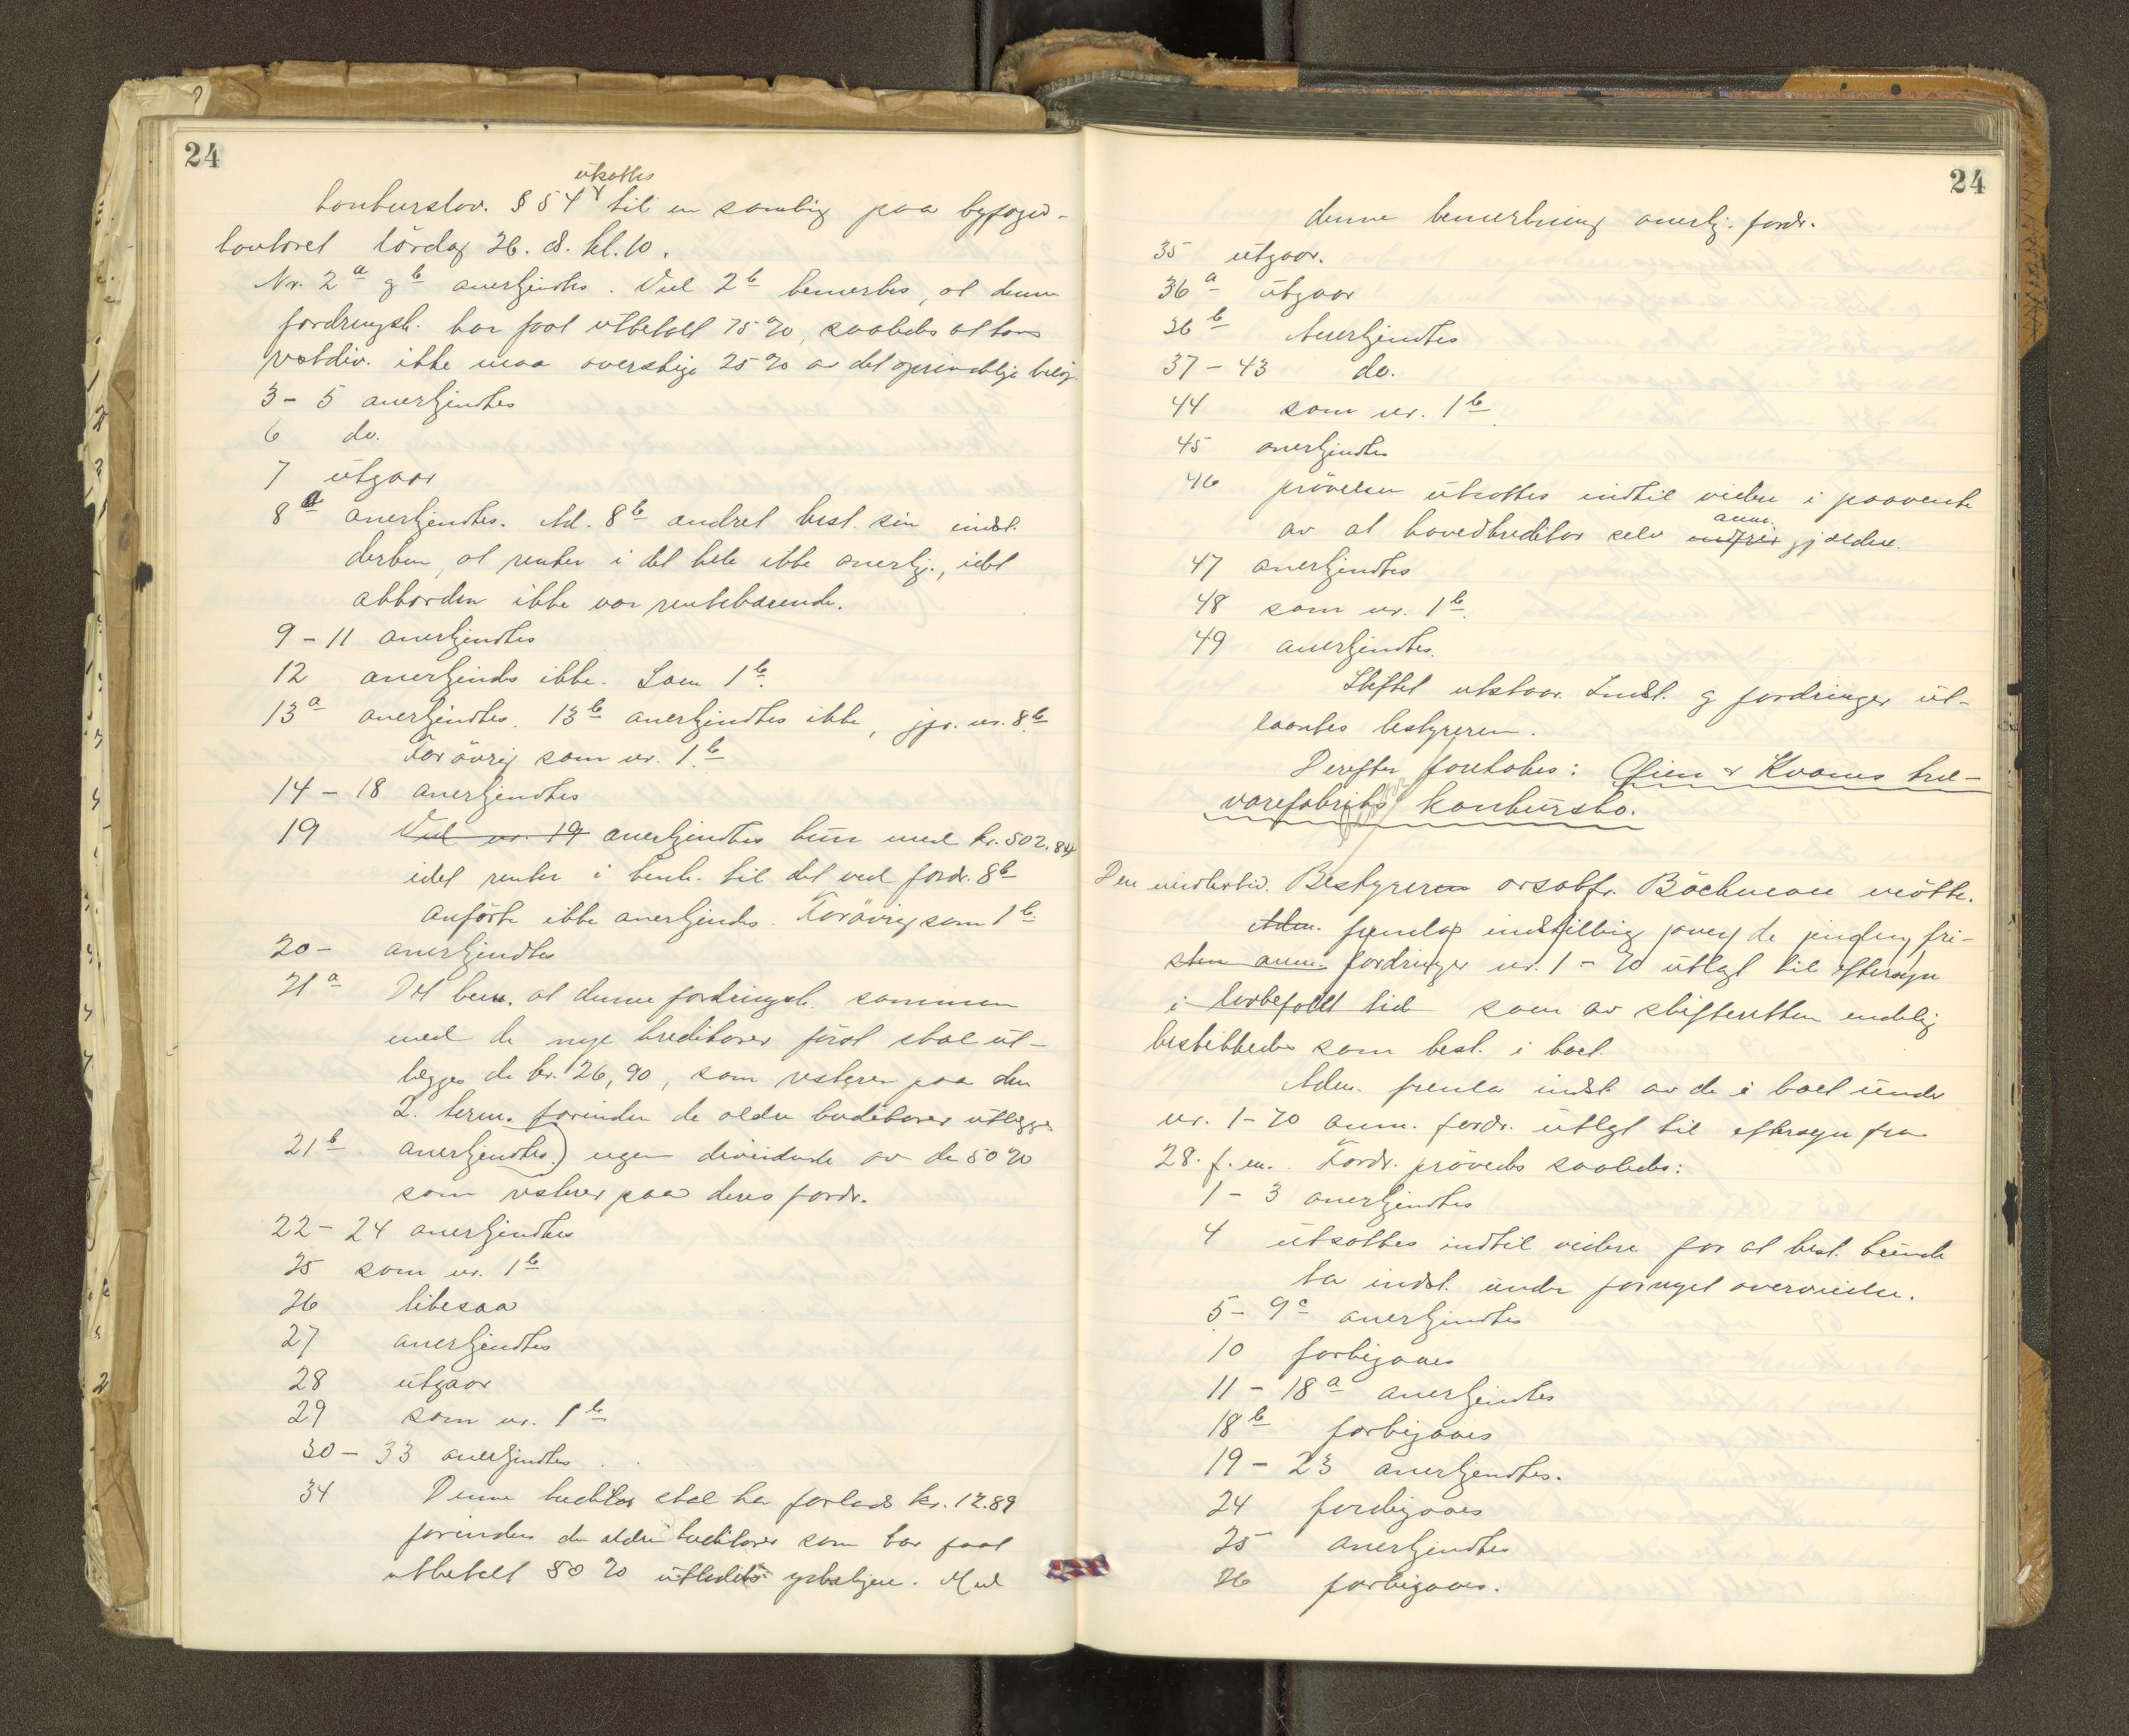 24
utsattes
konkurslov. § 54 til en samling paa byfoged-
kontoret lördag 26. ds. kl. 10.
Nr. 2a og b anerkjendtes. Ved 2b bemerkes, at denne
fordringsh. har faat utbetalt 75 %, saaledes at hans
restdiv. ikke maa overstige 25 % av det oprindelige belöp
3 - 5 anerkjendtes
6 do.
7 utgaar
8a anerkjendtes. Ad. 8b andret best. sin indst.
derhen, at renter i det hele ikke anerkj., idet
akkorden ikke var rentebærende.
9 - 11 anerkjendtes
12 anerkjendes ikke. Som 1b.
13a anerkjendtes. 13b anerkjendtes ikke, jfr. nr. 8b.
Forövrig som nr. 1b
14 - 18 anerkjendtes
19 Ved nr. 19 anerkjendtes kun med kr. 502.84
idet renter i henh. til det ved fordr. 8b
anförte ikke anerkjendes. Forövrig som 1b.
20 - anerkjendtes
21a Det bem. at denne fordringsh. sammen
med de nye kreditorer först skal ut-
lægges de kr. 26,90, som resterer paa den
2. term. forinden de ældre kreditorer utlægges
21b anerkjendtes.) nogen dividende av de 50 %
som resterer paa deres fordr.
22 - 24 anerkjendtes
25 som nr. 1b
26 likesaa
27 anerkjendtes
28 utgaar
29 som nr. 1b
30 - 33 anerkjendtes
34 Denne kreditor skal ha forlods kr. 12.89
forinden de ældre kreditorer som har faat
utbetalt 50 % yderligere. Med
24
denne bemerkning anerkj. fordr.
35 utgaar.
36a utgaar
36b Anerkjendtes
37 - 43 do.
44 som nr. 1b.
45 anerkjendtes
46 prövelsen utsattes indtil videre i paavente
anm.
av at hovedkreditor selv indfrir gjælden.
47 anerkjendtes
48 som nr. 1b.
49 anerkjendtes.
Skiftet utstaar. Indst. og fordringer ut-
laantes bestyreren.
Derefter foretokes: Öien & Kvams træ-
varefabriks konkursbo.
Den midlertid. Bestyreren orsakfr. Bäckman mötte.
Adm. fremlas indstilling over de inden fri-
sten anm. fordringer nr. 1 - 70 utlagt til eftersyn
i lovbefalet tid som av skifteretten endelig
beskikkedes som best. i boet.
Adm. fremla indst. av de i boet under
nr. 1-70 anm. fordr. utlagt til eftersyn fra
28. f. m. Fordr. prövedes saaledes:
1 - 3 anerkjendtes
4 utsattes indtil videre for at best. kunde
ta indst. under fornyet overveielse.
5 - 9c anerkjendtes
10 forbigaaes
11 - 18a anerkjendtes
18b forbigaaes
19 - 23 anerkjendtes.
24 forbigaaes
25 anerkjendtes
26 forbigaaes.